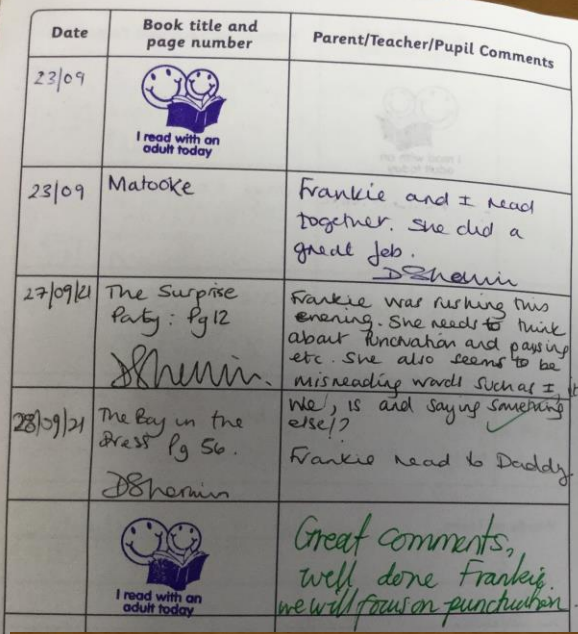 Date
Book title and
page number
Parent/Teacher/Pupil Comments
23/09
I read with an
adult today
23/09
Matooke
Frankie and I read
together. She did a
great job.
DShermin
27/09/21
The Surprise
Party: Pg 12
DShermin.
Frankie was rushing this
evening. She needs to think
about Punctuation and pausing
etc. She also seems to be
misreading words such as I, it
we, is and saying something
else!?
28/09/21
The Boy in the
Dress Pg 56.
DShermin
Frankie read to Daddy.
I read with an
adult today
Great comments,
well done Frankie.
we will focus on punctuation